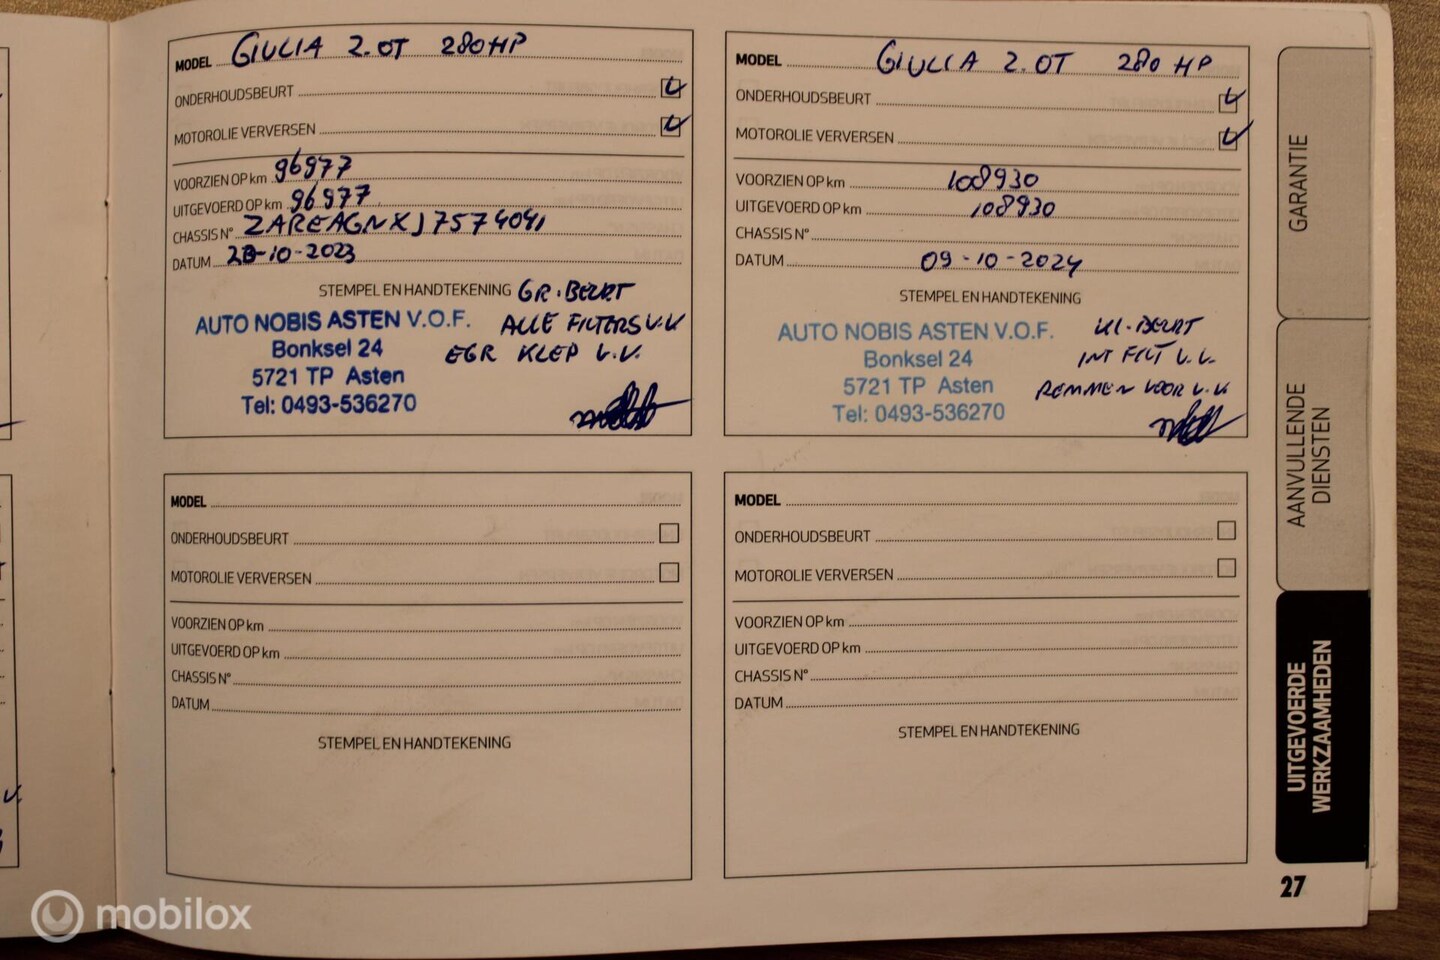 MODEL GIULIA 2.0T 280HP
ONDERHOUDSBEURT
MOTOROLIE VERVERSEN
VOORZIEN OP km 96977
UITGEVOERD OP km 96977
CHASSIS N° ZAREAGNXJ7574041
DATUM -10-2023
STEMPEL EN HANDTEKENING GR. BEURT
AUTO NOBIS ASTEN V.O.F. ALLE FILTERS V.V
Bonksel 24 EGR KLEP V.V.
5721 TP Asten
Tel: 0493-536270
MODEL GIULIA 2.0T 280 HP
ONDERHOUDSBEURT
MOTOROLIE VERVERSEN
VOORZIEN OP km 108930
UITGEVOERD OP km 108930
CHASSIS N°
DATUM 09-10-2024
STEMPEL EN HANDTEKENING
AUTO NOBIS ASTEN V.O.F. KL. BEURT
Bonksel 24 INT FILT V.V.
5721 TP Asten REMMEN VOOR V.V
Tel: 0493-536270
MODEL
ONDERHOUDSBEURT
MOTOROLIE VERVERSEN
VOORZIEN OP km
UITGEVOERD OP km
CHASSIS N°
DATUM
STEMPEL EN HANDTEKENING
MODEL
ONDERHOUDSBEURT
MOTOROLIE VERVERSEN
VOORZIEN OP km
UITGEVOERD OP km
CHASSIS N°
DATUM
STEMPEL EN HANDTEKENING
GARANTIE
AANVULLENDE
DIENSTEN
UITGEVOERDE
WERKZAAMHEDEN
27
mobilox